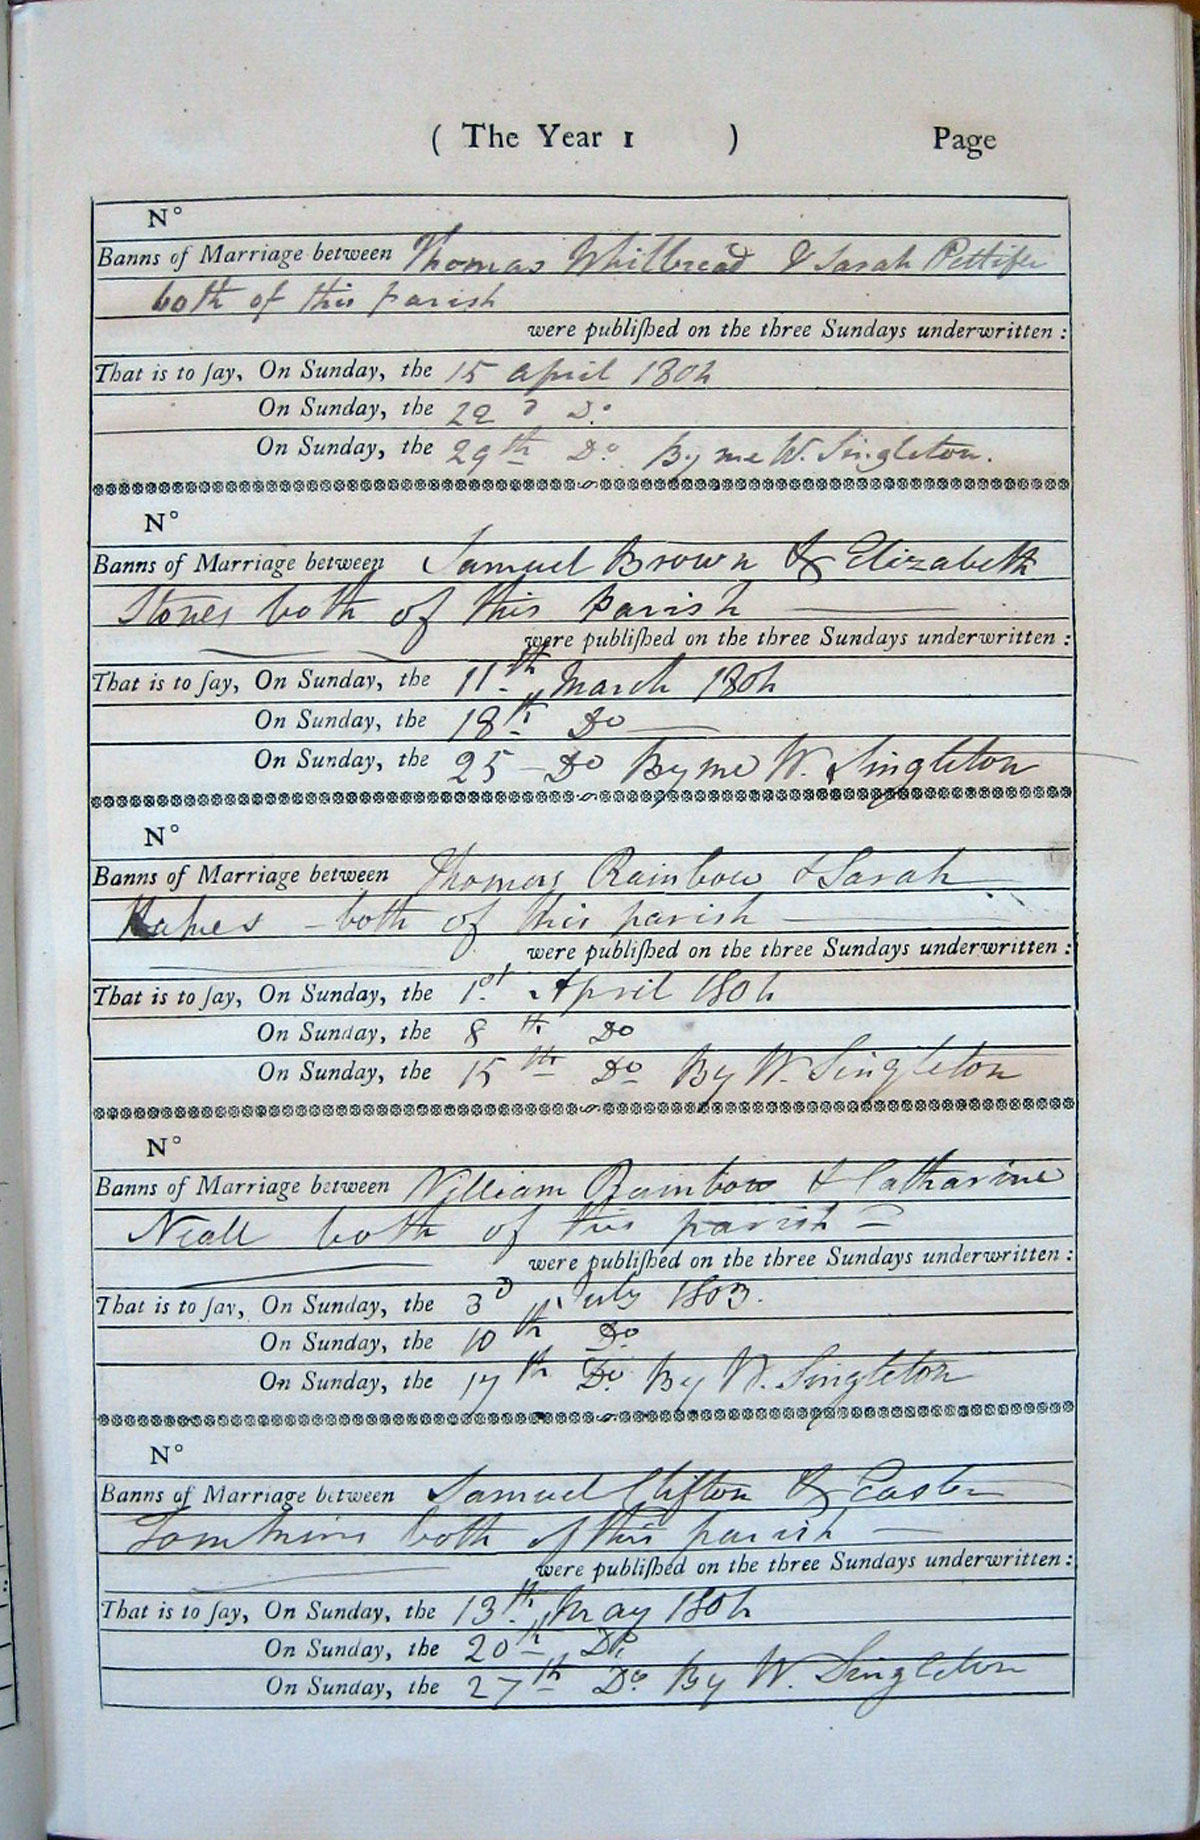 ( The Year 1 ) Page
N°
Banns of Marriage between Thomas Whitbread & Sarah Pettifer
both of this parish
were publiſhed on the three Sundays underwritten :
That is to ſay, On Sunday, the 15 april 1804
On Sunday, the 22d Do
On Sunday, the 29th Do By me W. Singleton.
N°
Banns of Marriage between Samuel Brown & Elizabeth
Stones both of this Parish
were publiſhed on the three Sundays underwritten :
That is to ſay, On Sunday, the 11th March 1804
On Sunday, the 18th Do
On Sunday, the 25 Do By me W. Singleton
N°
Banns of Marriage between Thomas Rainbow & Sarah
both of this parish
were publiſhed on the three Sundays underwritten :
That is to ſay, On Sunday, the 1st April 1804
On Sunday, the 8th Do
On Sunday, the 15th Do By W. Singleton
N°
Banns of Marriage between William Rainbow & Catharine
Neall both of this parish
were publiſhed on the three Sundays underwritten :
That is to ſay, On Sunday, the 3d July 1803.
On Sunday, the 10th Do
On Sunday, the 17th Do By W. Singleton
N°
Banns of Marriage between Samuel Clifton & Easter
Tomkins both of this parish
were publiſhed on the three Sundays underwritten :
That is to ſay, On Sunday, the 13th May 1804
On Sunday, the 20th Do
On Sunday, the 27th Do By W. Singleton